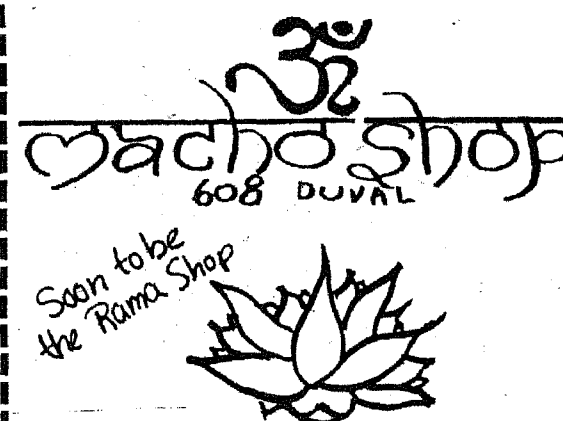 ॐ
macho shop
608 DUVAL
Soon to be
the Rama Shop